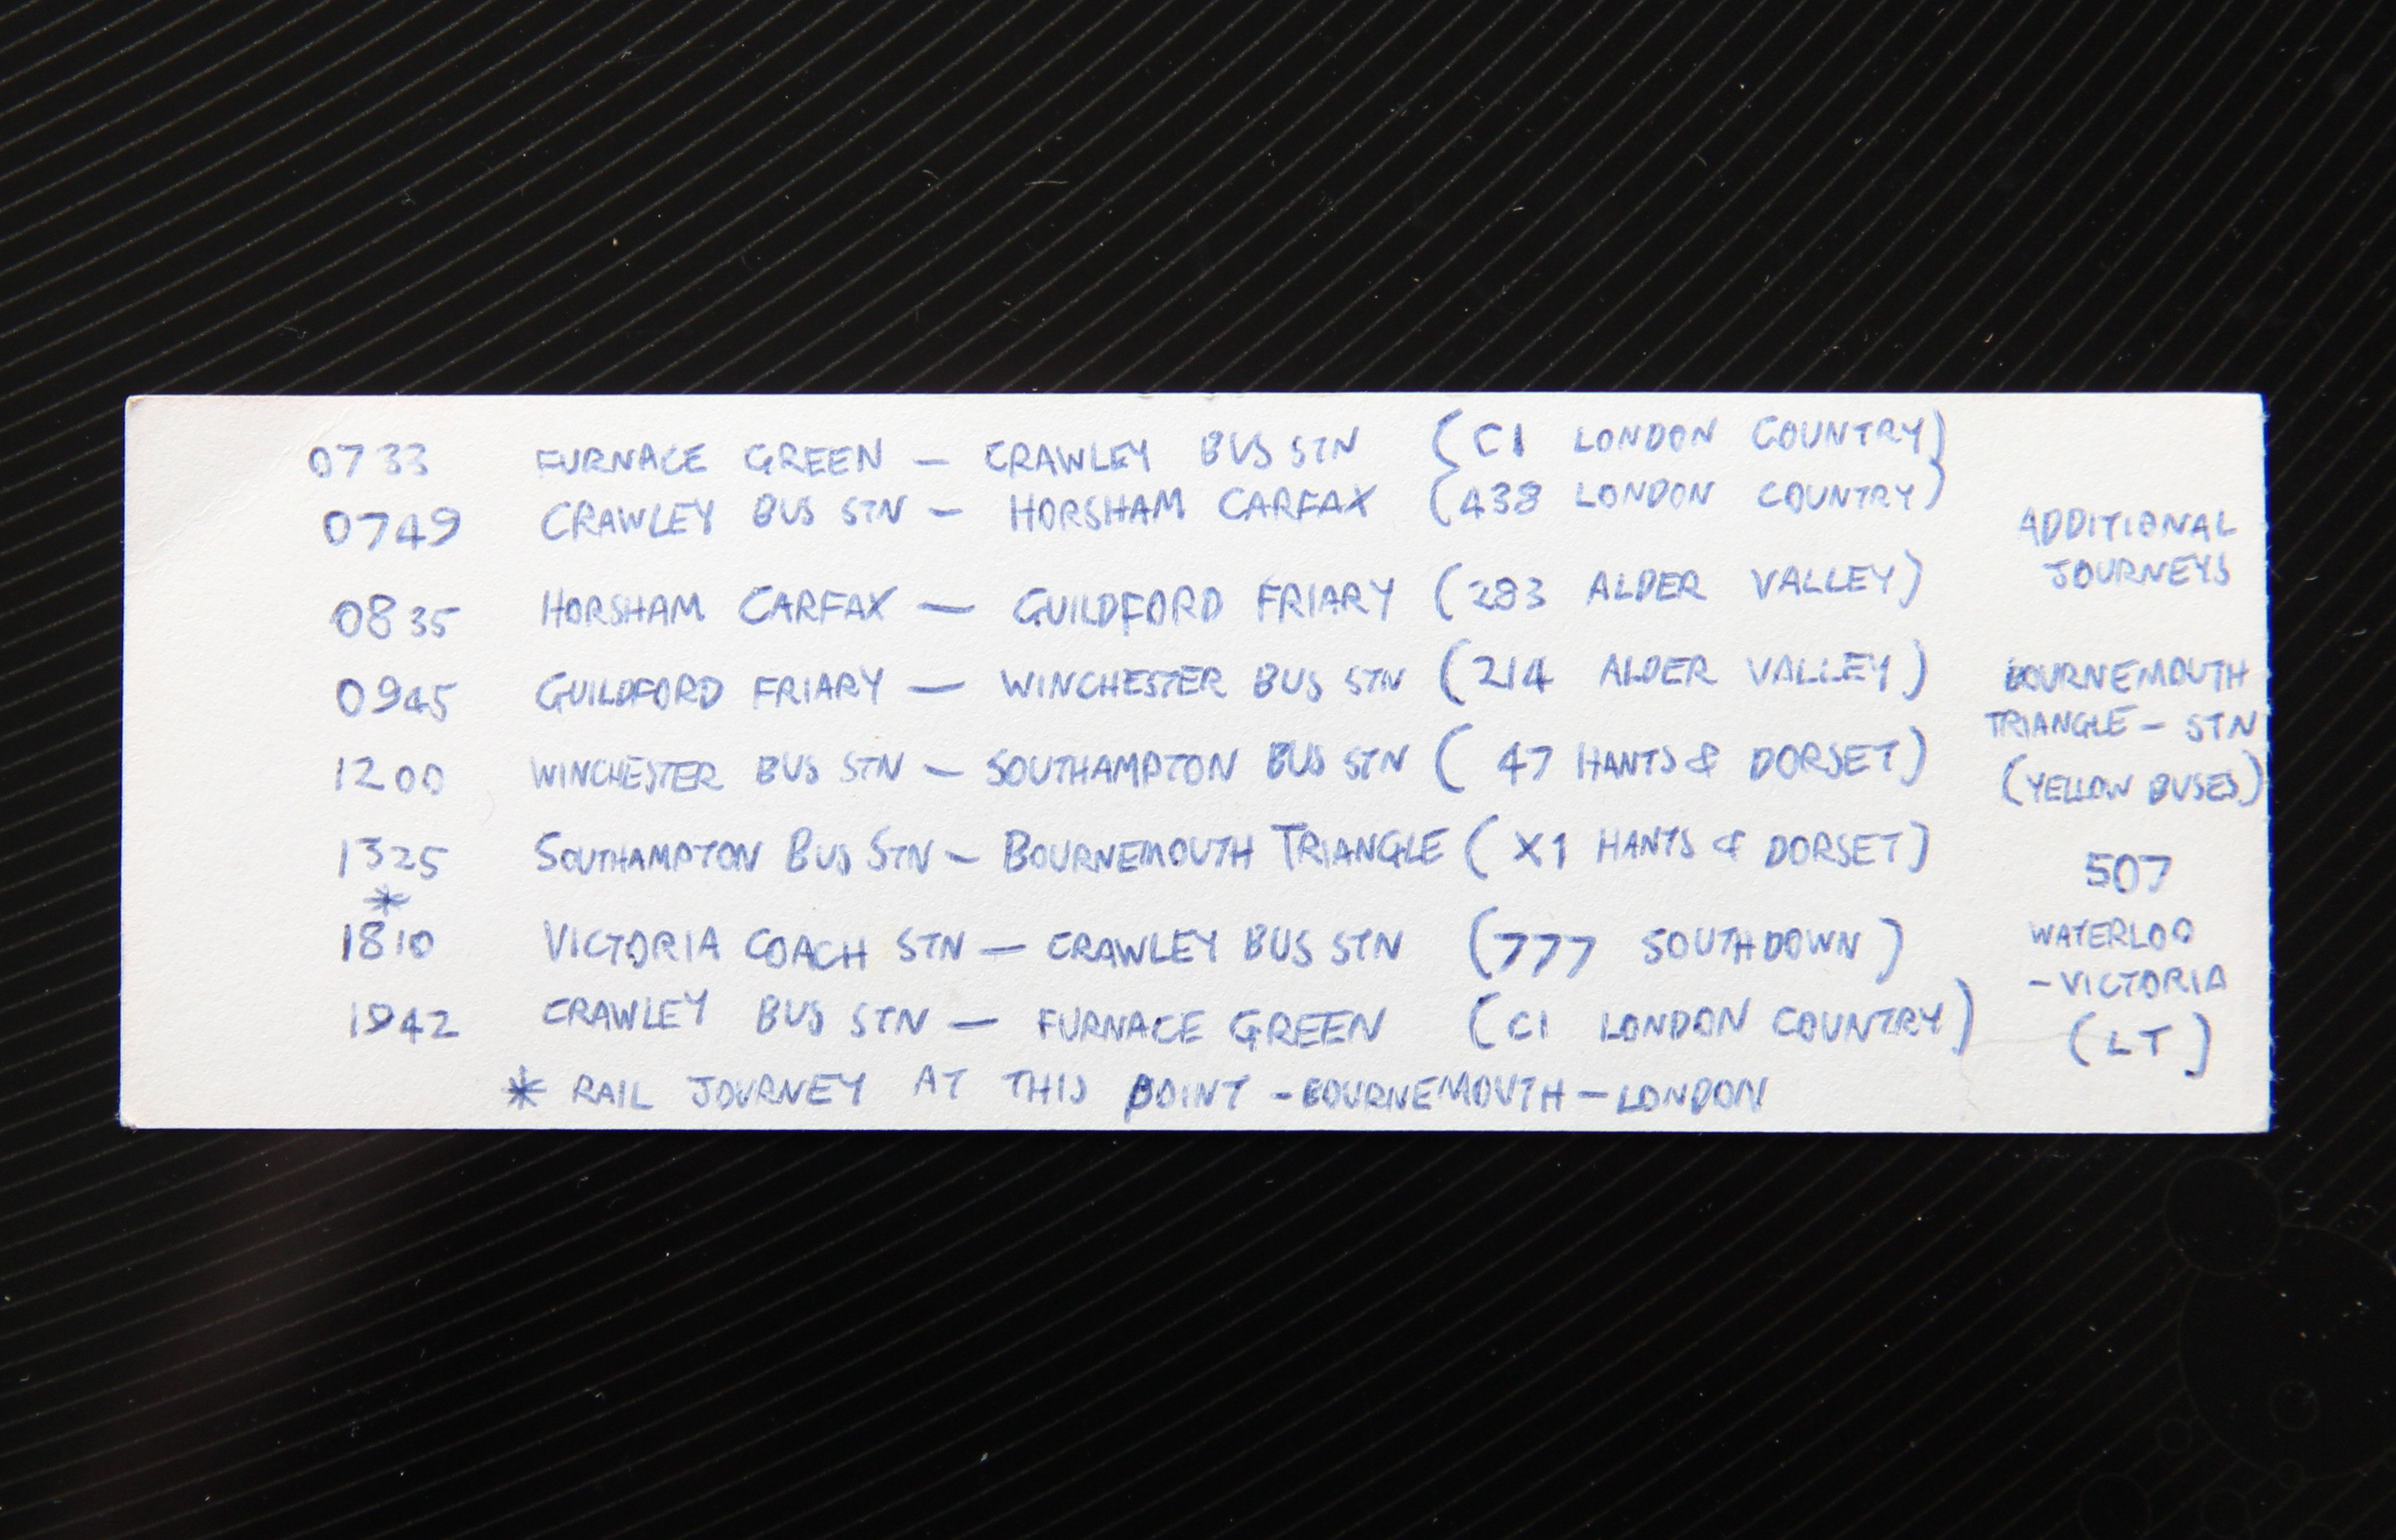 0733 FURNACE GREEN - CRAWLEY BUS STN (C1 LONDON COUNTRY)
0749 CRAWLEY BUS STN - HORSHAM CARFAX (438 LONDON COUNTRY)
0835 HORSHAM CARFAX - GUILDFORD FRIARY (283 ALDER VALLEY)
0945 GUILDFORD FRIARY - WINCHESTER BUS STN (214 ALDER VALLEY)
1200 WINCHESTER BUS STN - SOUTHAMPTON BUS STN (47 HANTS & DORSET)
1325 SOUTHAMPTON BUS STN - BOURNEMOUTH TRIANGLE (X1 HANTS & DORSET)
*
1810 VICTORIA COACH STN - CRAWLEY BUS STN (777 SOUTHDOWN)
1942 CRAWLEY BUS STN - FURNACE GREEN (C1 LONDON COUNTRY)
* RAIL JOURNEY AT THIS POINT - BOURNEMOUTH - LONDON
ADDITIONAL
JOURNEYS
BOURNEMOUTH
TRIANGLE - STN
(YELLOW BUSES)
507
WATERLOO
- VICTORIA
(LT)